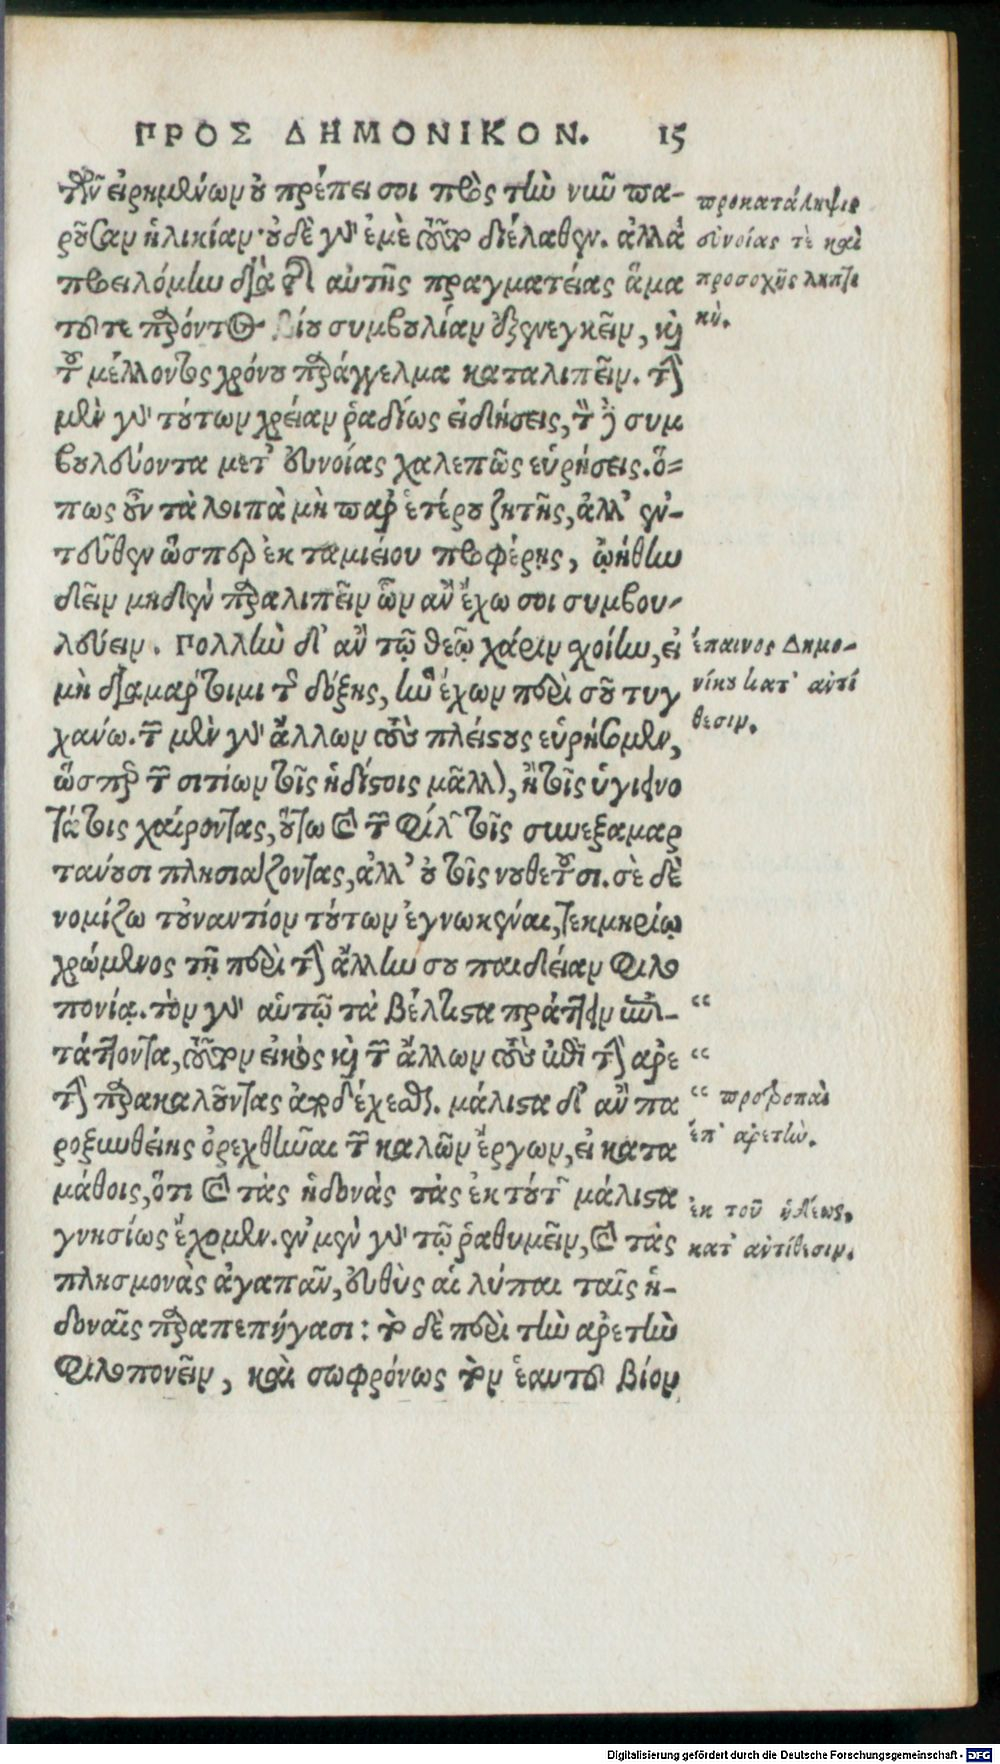 ΠΡΟΣ ΔΗΜΟΝΙΚΟΝ. 15
τῶν εἰρημένων οὐ πρέπει σοι πρὸς τὴν νῦν πα-
ροῦσαν ἡλικίαν· οὐδὲ γὰρ ἐμὲ τοῦτο διέλαθεν. ἀλλὰ
προειλόμην διὰ τῆς αὐτῆς πραγματείας ἅμα
τοῦ τε παρόντος βίου συμβουλίαν ἐξενεγκεῖν, καὶ
τοῦ μέλλοντος χρόνου παράγγελμα καταλιπεῖν. τὴν
μὲν γὰρ τούτων χρείαν ῥαδίως εἰδήσεις, τὸν δὲ συμ
βουλεύοντα μετ' εὐνοίας χαλεπῶς εὑρήσεις. ὅ-
πως οὖν τὰ λοιπὰ μὴ παρ' ἑτέρου ζητῇς, ἀλλ' ἐν-
τεῦθεν ὥσπερ ἐκ ταμιείου προφέρῃς, ᾠήθην
δεῖν μηδὲν παραλιπεῖν ὧν ἂν ἔχω σοι συμβου-
λεύειν. Πολλὴν δ' ἂν τῷ θεῷ χάριν σχοίην, εἰ
μὴ διαμάρτοιμι τῆς δόξης, ἣν ἔχων περὶ σοῦ τυγ
χάνω. τῶν μὲν γὰρ ἄλλων τοὺς πλείστους εὑρήσομεν,
ὥσπερ τῶν σιτίων τοῖς ἡδίστοις μᾶλλον, ἢ τοῖς ὑγιεινο
τάτοις χαίροντας, οὕτω καὶ τῶν φίλων τοῖς συνεξαμαρ
τάνουσι πλησιάζοντας, ἀλλ' οὐ τοῖς νουθετοῦσι. σὲ δὲ
νομίζω τοὐναντίον τούτων ἐγνωκέναι, τεκμηρίῳ
χρώμενος τῇ περὶ τὴν ἄλλην σου παιδείαν φιλο
πονίᾳ. τὸν γὰρ αὑτῷ τὰ βέλτιστα πράττειν ἐπι- “
τάττοντα, τοῦτον εἰκὸς καὶ τῶν ἄλλων τοὺς ἐπὶ τὴν ἀρε “
τὴν παρακαλοῦντας ἀποδέχεσθαι. μάλιστα δ' ἂν πα “
ροξυνθείης ὀρεχθῆναι τῶν καλῶν ἔργων, εἰ κατα
μάθοις, ὅτι καὶ τὰς ἡδονὰς τὰς ἐκ τούτων μάλιστα
γνησίως ἔχομεν. ἐν μὲν γὰρ τῷ ῥαθυμεῖν, καὶ τὰς
πλησμονὰς ἀγαπᾶν, εὐθὺς αἱ λύπαι ταῖς ἡ-
δοναῖς παραπεπήγασι: τὸ δὲ περὶ τὴν ἀρετὴν
φιλοπονεῖν, καὶ σωφρόνως τὸν ἑαυτοῦ βίον
προκατάληψις
εὐνοίας τὲ καὶ
προσοχῆς ληπτι
κή.
ἔπαινος Δημο-
νίκου κατ' ἀντί
θεσιν.
προτροπαὶ
ἐπ' ἀρετὴν.
ἐκ τοῦ ἡδέως.
κατ' ἀντίθεσιν.
Digitalisierung gefördert durch die Deutsche Forschungsgemeinschaft - DFG